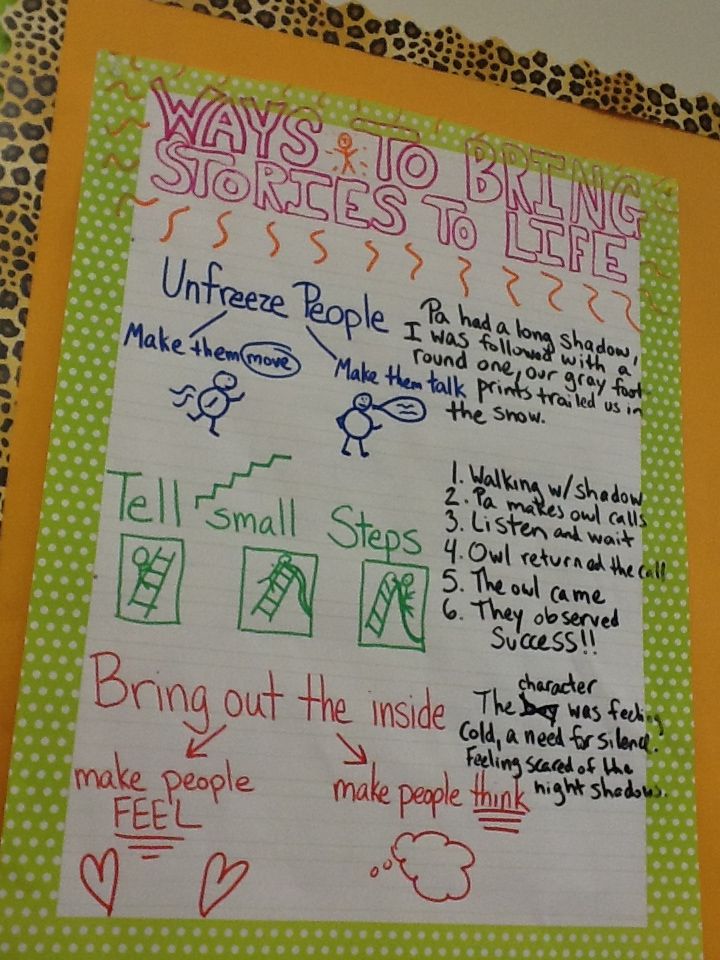 WAYS TO BRING
STORIES TO LIFE
Unfreeze People
Make them move
Make them talk
Pa had a long shadow,
I was followed with a
round one, our gray foot-
prints trailed us in
the snow.
Tell small Steps
1. Walking w/shadow
2. Pa makes owl calls
3. Listen and wait
4. Owl returned the call
5. The owl came
6. They observed
Success!!
Bring out the inside
make people
FEEL
make people think
character
The boy was feeling
cold, a need for silence.
Feeling scared of the
night shadows.